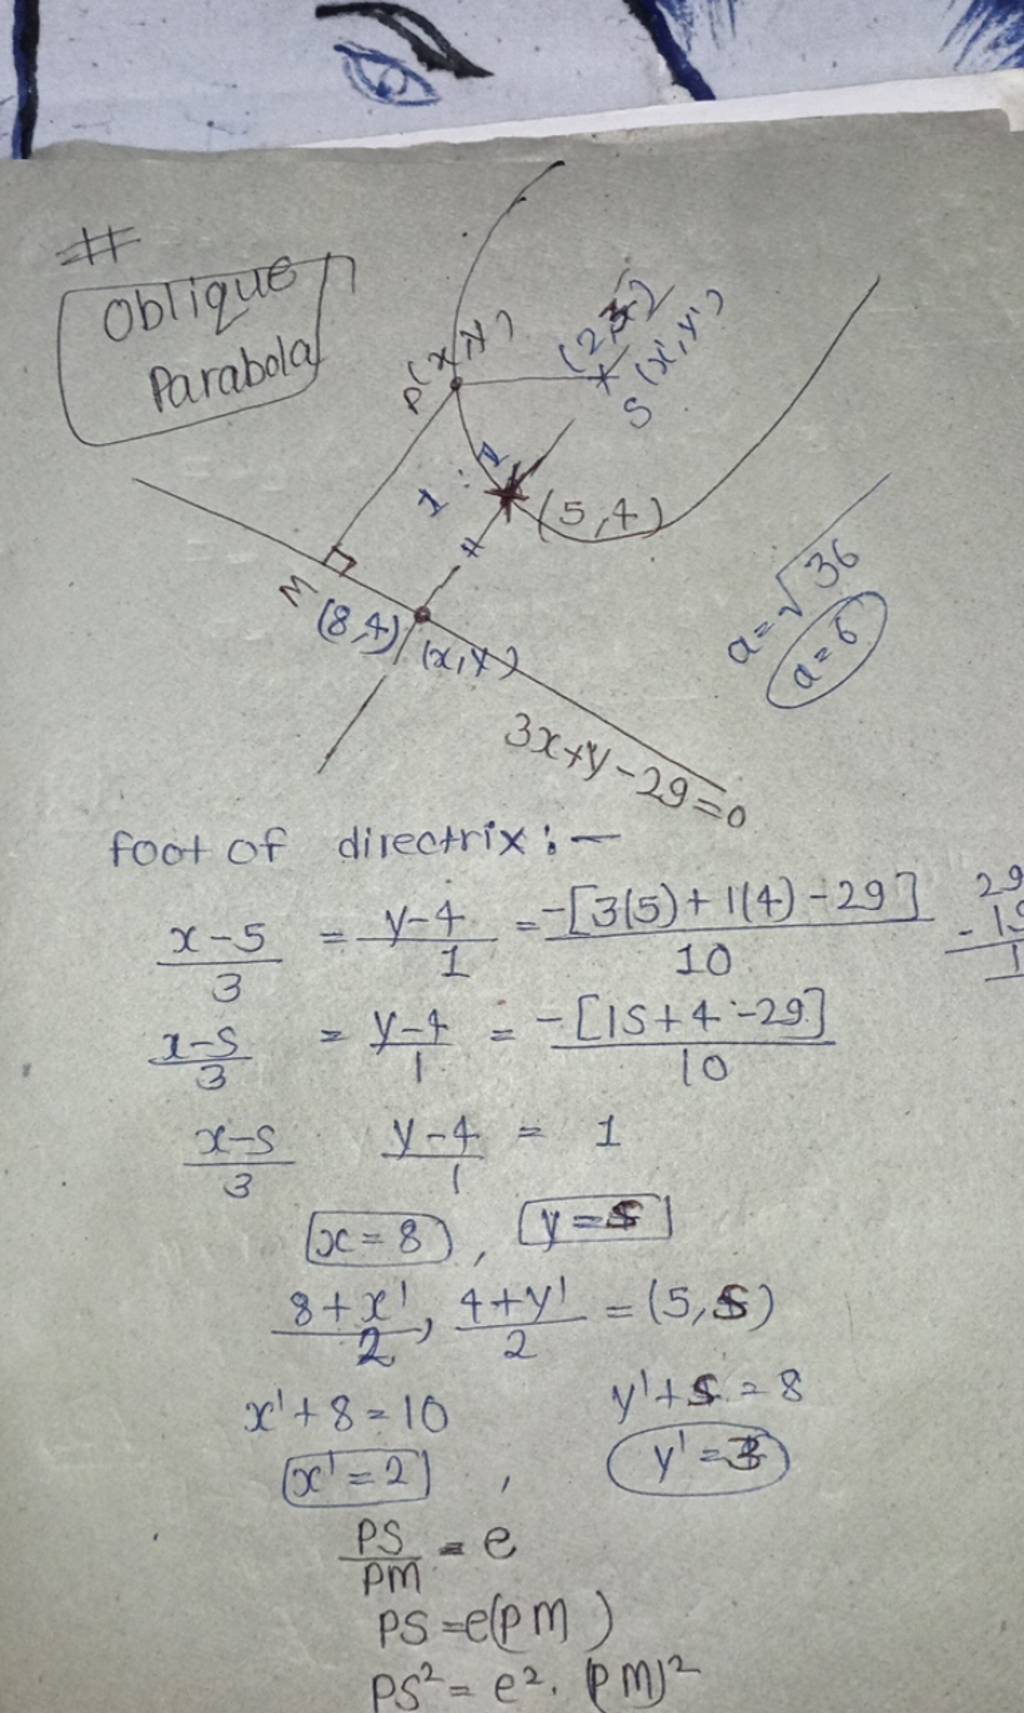 #
Oblique
Parabola
P(x,y)
(2,3)
S (x',y')
1 : 1
(5,4)
M
(8,4)
(x,y)
3x+y-29=0
a=√36
a=6
foot of directrix:-
x-5/3 = y-4/1 = -[3(5)+1(4)-29]/10
29
x-5/3 = y-4/1 = -[15+4-29]/10
x-5/3 y-4/1 = 1
x=8, y=5
8+x'/2, 4+y'/2 = (5,5)
x'+8=10 y'+5=8
x'=2, y'=3
PS/PM = e
PS=e(PM)
PS²=e².(PM)²